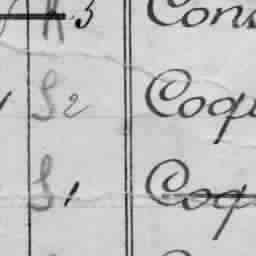 A 3 Cons
S 2 Coqu
S 1 Coq